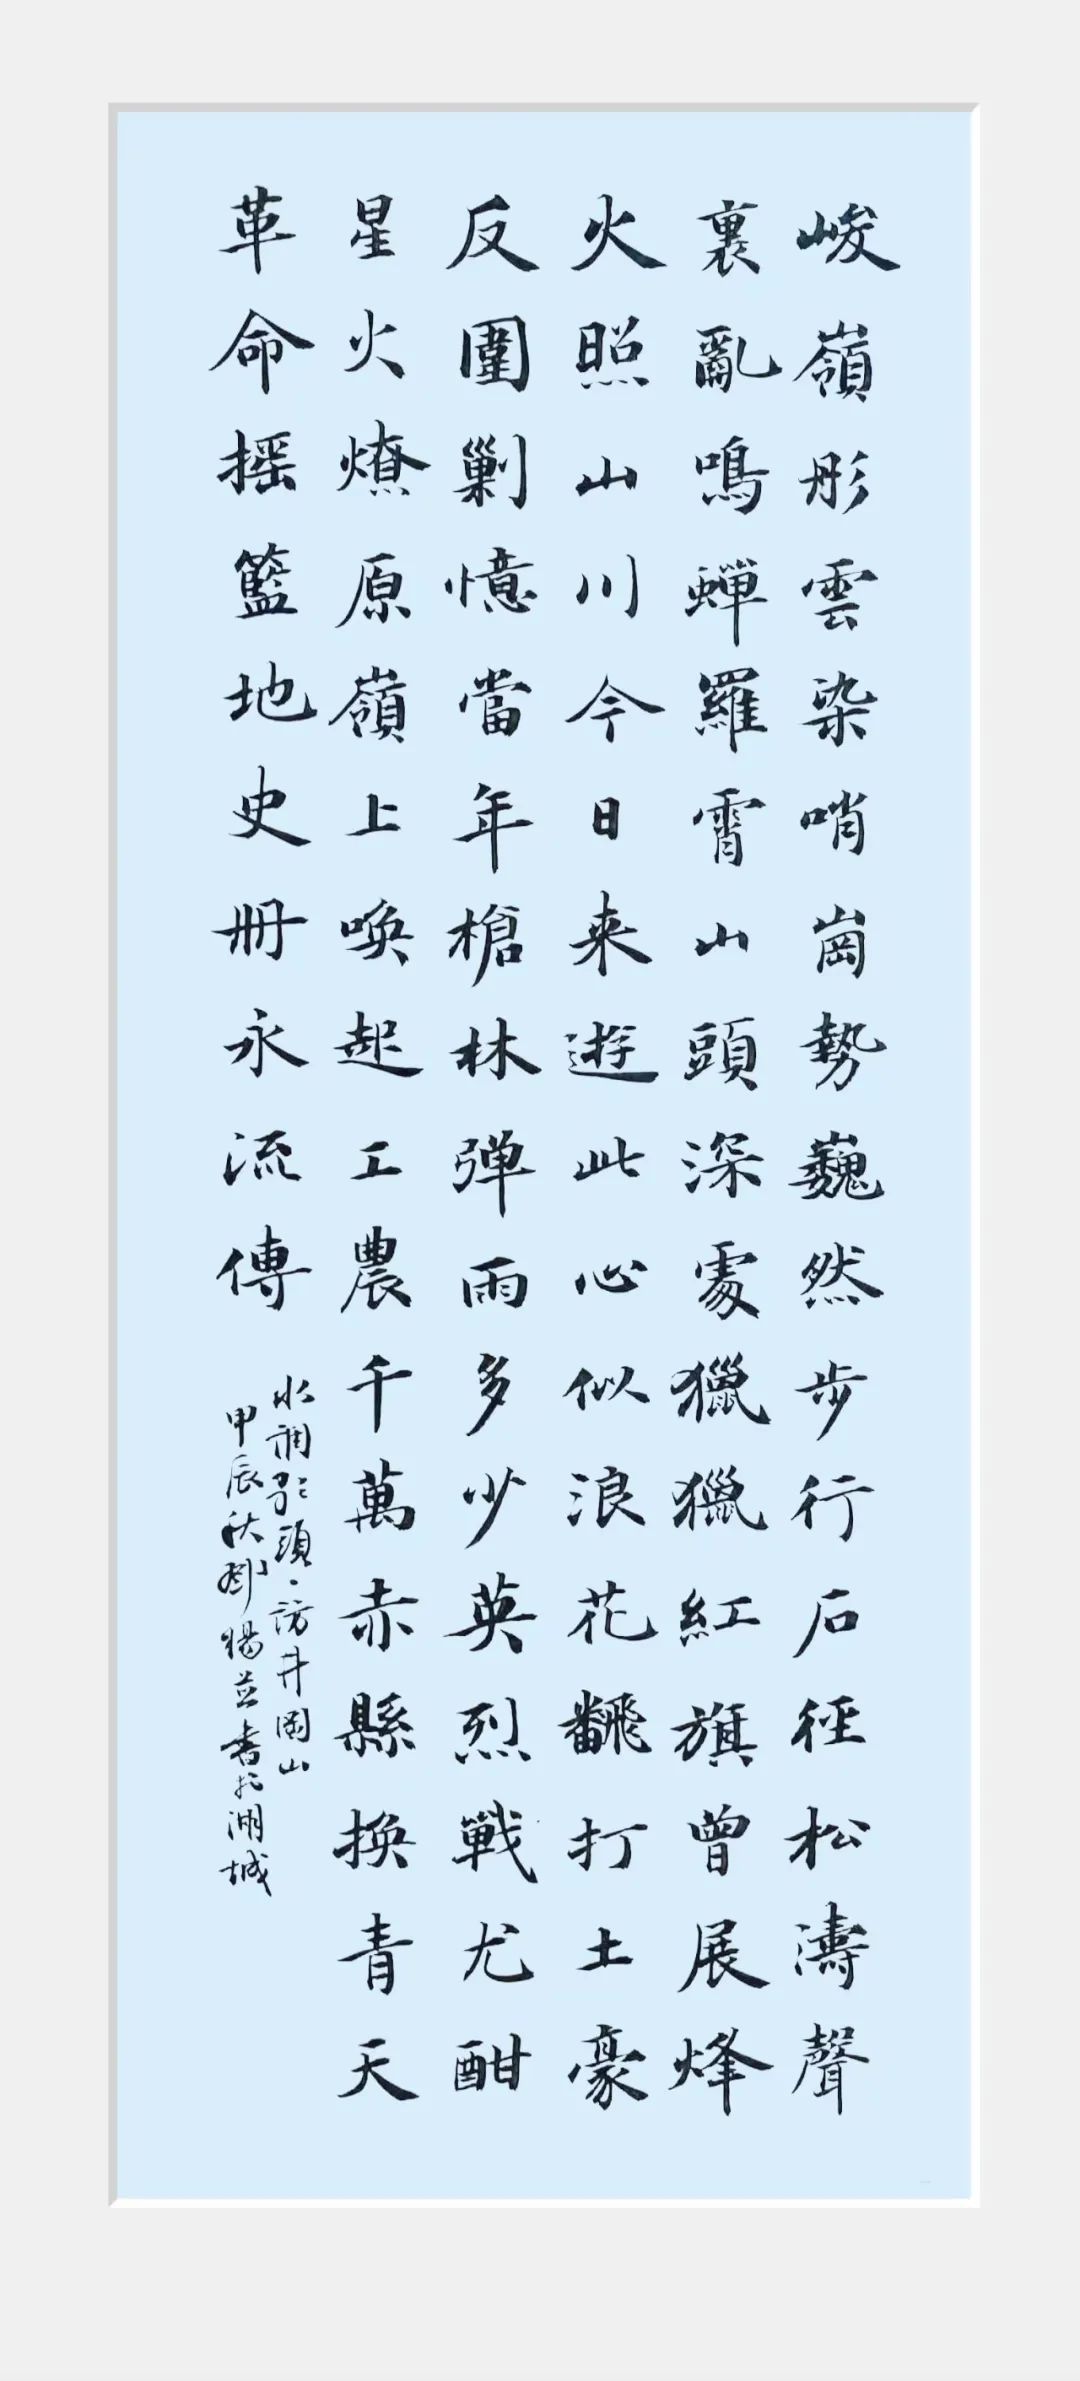 峻嶺彤雲染哨崗勢巍然步行石徑松濤聲
裏亂鳴蟬羅霄山頭深處獵獵紅旗曾展烽
火照山川今日来遊此心似浪花飜打土豪
反圍剿憶當年槍林弹雨多少英烈戰尤酣
星火燎原嶺上唤起工農千萬赤縣换青天
革命摇籃地史册永流傳
水調歌頭·訪井岡山
甲辰秋楊並書於湖城